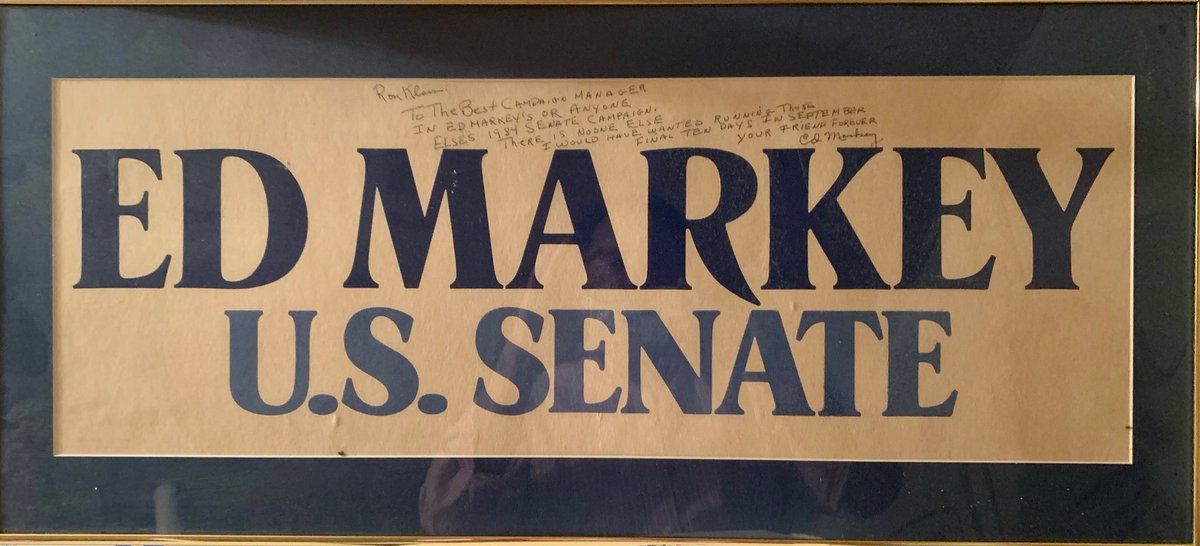 Ron Klain:
TO THE BEST CAMPAIGN MANAGER
IN ED MARKEY'S OR ANYONE
ELSE'S 1984 SENATE CAMPAIGN.
THERE IS NOONE ELSE
I WOULD HAVE WANTED RUNNING THOSE
FINAL TEN DAYS IN SEPTEMBER
YOUR FRIEND FOREVER
Ed Markey
ED MARKEY
U.S. SENATE